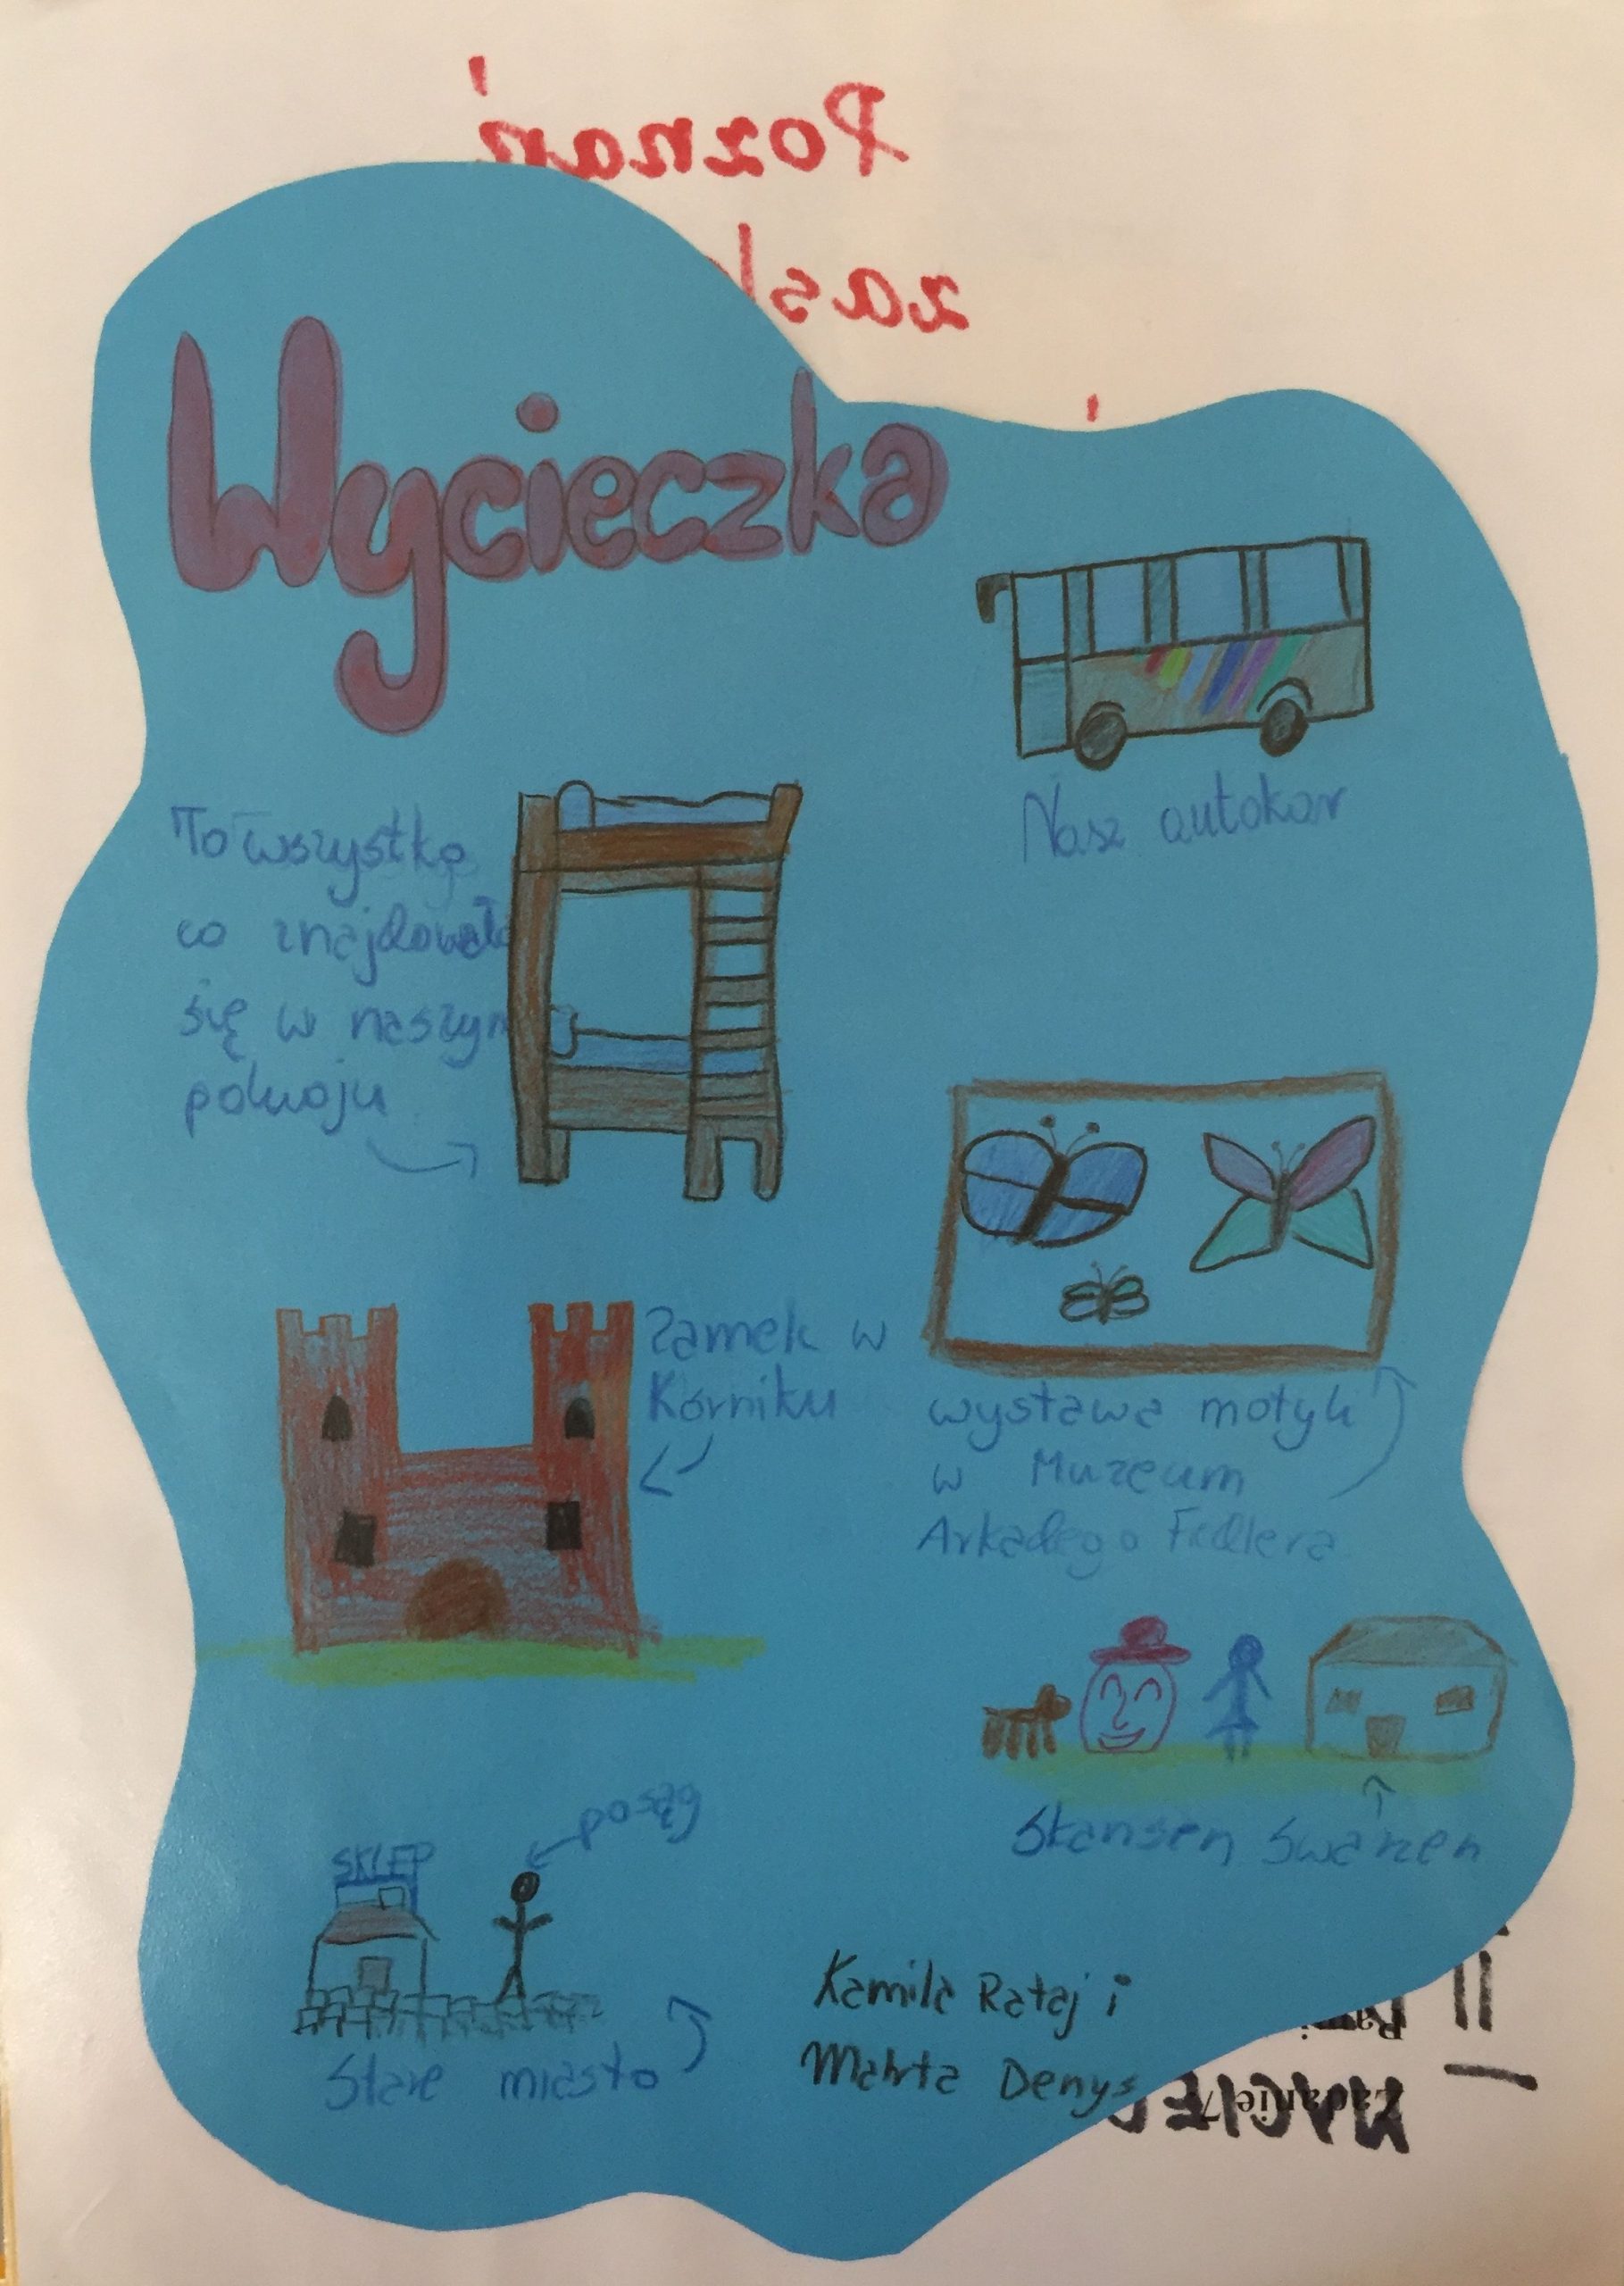 Poznań
Wycieczka
Nasz autokar
To wszystko
co znajdowało
się w naszym
pokoju
Zamek w
Kórniku
wystawa motyli
w Muzeum
Arkadego Fiedlera
Skansen Swarzen
posąg
SKLEP
Stare miasto
Kamila Rataj i
Marta Denys
Zadanie 7